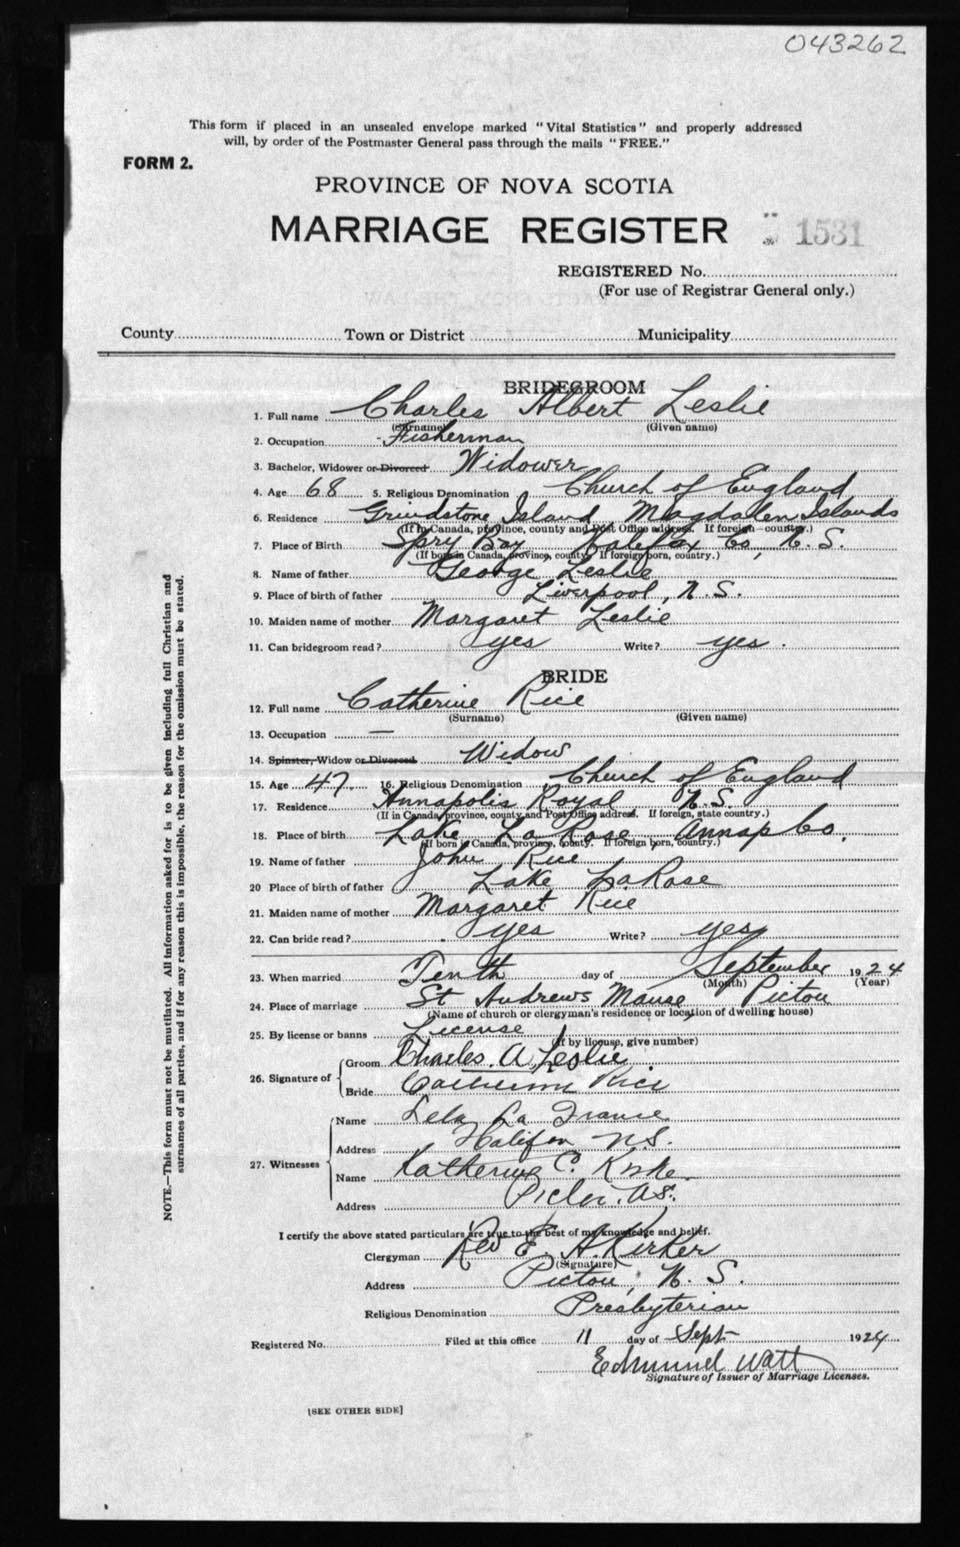 043262
This form if placed in an unsealed envelope marked "Vital Statistics" and properly addressed
will, by order of the Postmaster General pass through the mails "FREE."
FORM 2.
PROVINCE OF NOVA SCOTIA
MARRIAGE REGISTER 1531
REGISTERED No.
(For use of Registrar General only.)
County Town or District Municipality
BRIDEGROOM
1. Full name Charles Albert Leslie
(Surname) (Given name)
2. Occupation Fisherman
3. Bachelor, Widower or Divorced Widower
4. Age 68 5. Religious Denomination Church of England
6. Residence Grindstone Island Magdalen Islands
(If in Canada, province, county and Post Office address. If foreign country.)
7. Place of Birth Spry Bay Halifax Co, N. S.
(If born in Canada, province, county. If foreign born, country.)
8. Name of father George Leslie
9. Place of birth of father Liverpool, N. S.
10. Maiden name of mother Margaret Leslie
11. Can bridegroom read? yes Write? yes.
BRIDE
12. Full name Catherine Rice
(Surname) (Given name)
13. Occupation —
14. Spinster, Widow or Divorced Widow
15. Age 47 16. Religious Denomination Church of England
17. Residence Annapolis Royal N. S.
(If in Canada, province, county and Post Office address. If foreign, state country.)
18. Place of birth Lake La Rose Annap Co.
(If born in Canada, province, county. If foreign born, country.)
19. Name of father John Rice
20 Place of birth of father Lake La Rose
21. Maiden name of mother Margaret Rice
22. Can bride read? yes Write? yes
23. When married Tenth day of September 1924
(Month) (Year)
24. Place of marriage St Andrews Manse Pictou
(Name of church or clergyman's residence or location of dwelling house)
25. By license or banns License
(If by license, give number)
26. Signature of Groom Charles. A. Leslie.
Bride Catherine Rice
27. Witnesses Name Lela La France
Address Halifax N.S.
Name Katherine C.
Address Pictou.
I certify the above stated particulars are true to the best of my knowledge and belief.
Clergyman Rev E. A. Kirker
(Signature)
Address Pictou, N. S.
Religious Denomination Presbyterian
Registered No. Filed at this office 11 day of Sept 1924
Edmund Watt
Signature of Issuer of Marriage Licenses.
[SEE OTHER SIDE]
NOTE.—This form must not be mutilated. All information asked for is to be given including full Christian and
surnames of all parties, and if for any reason this is impossible, the reason for the omission must be stated.